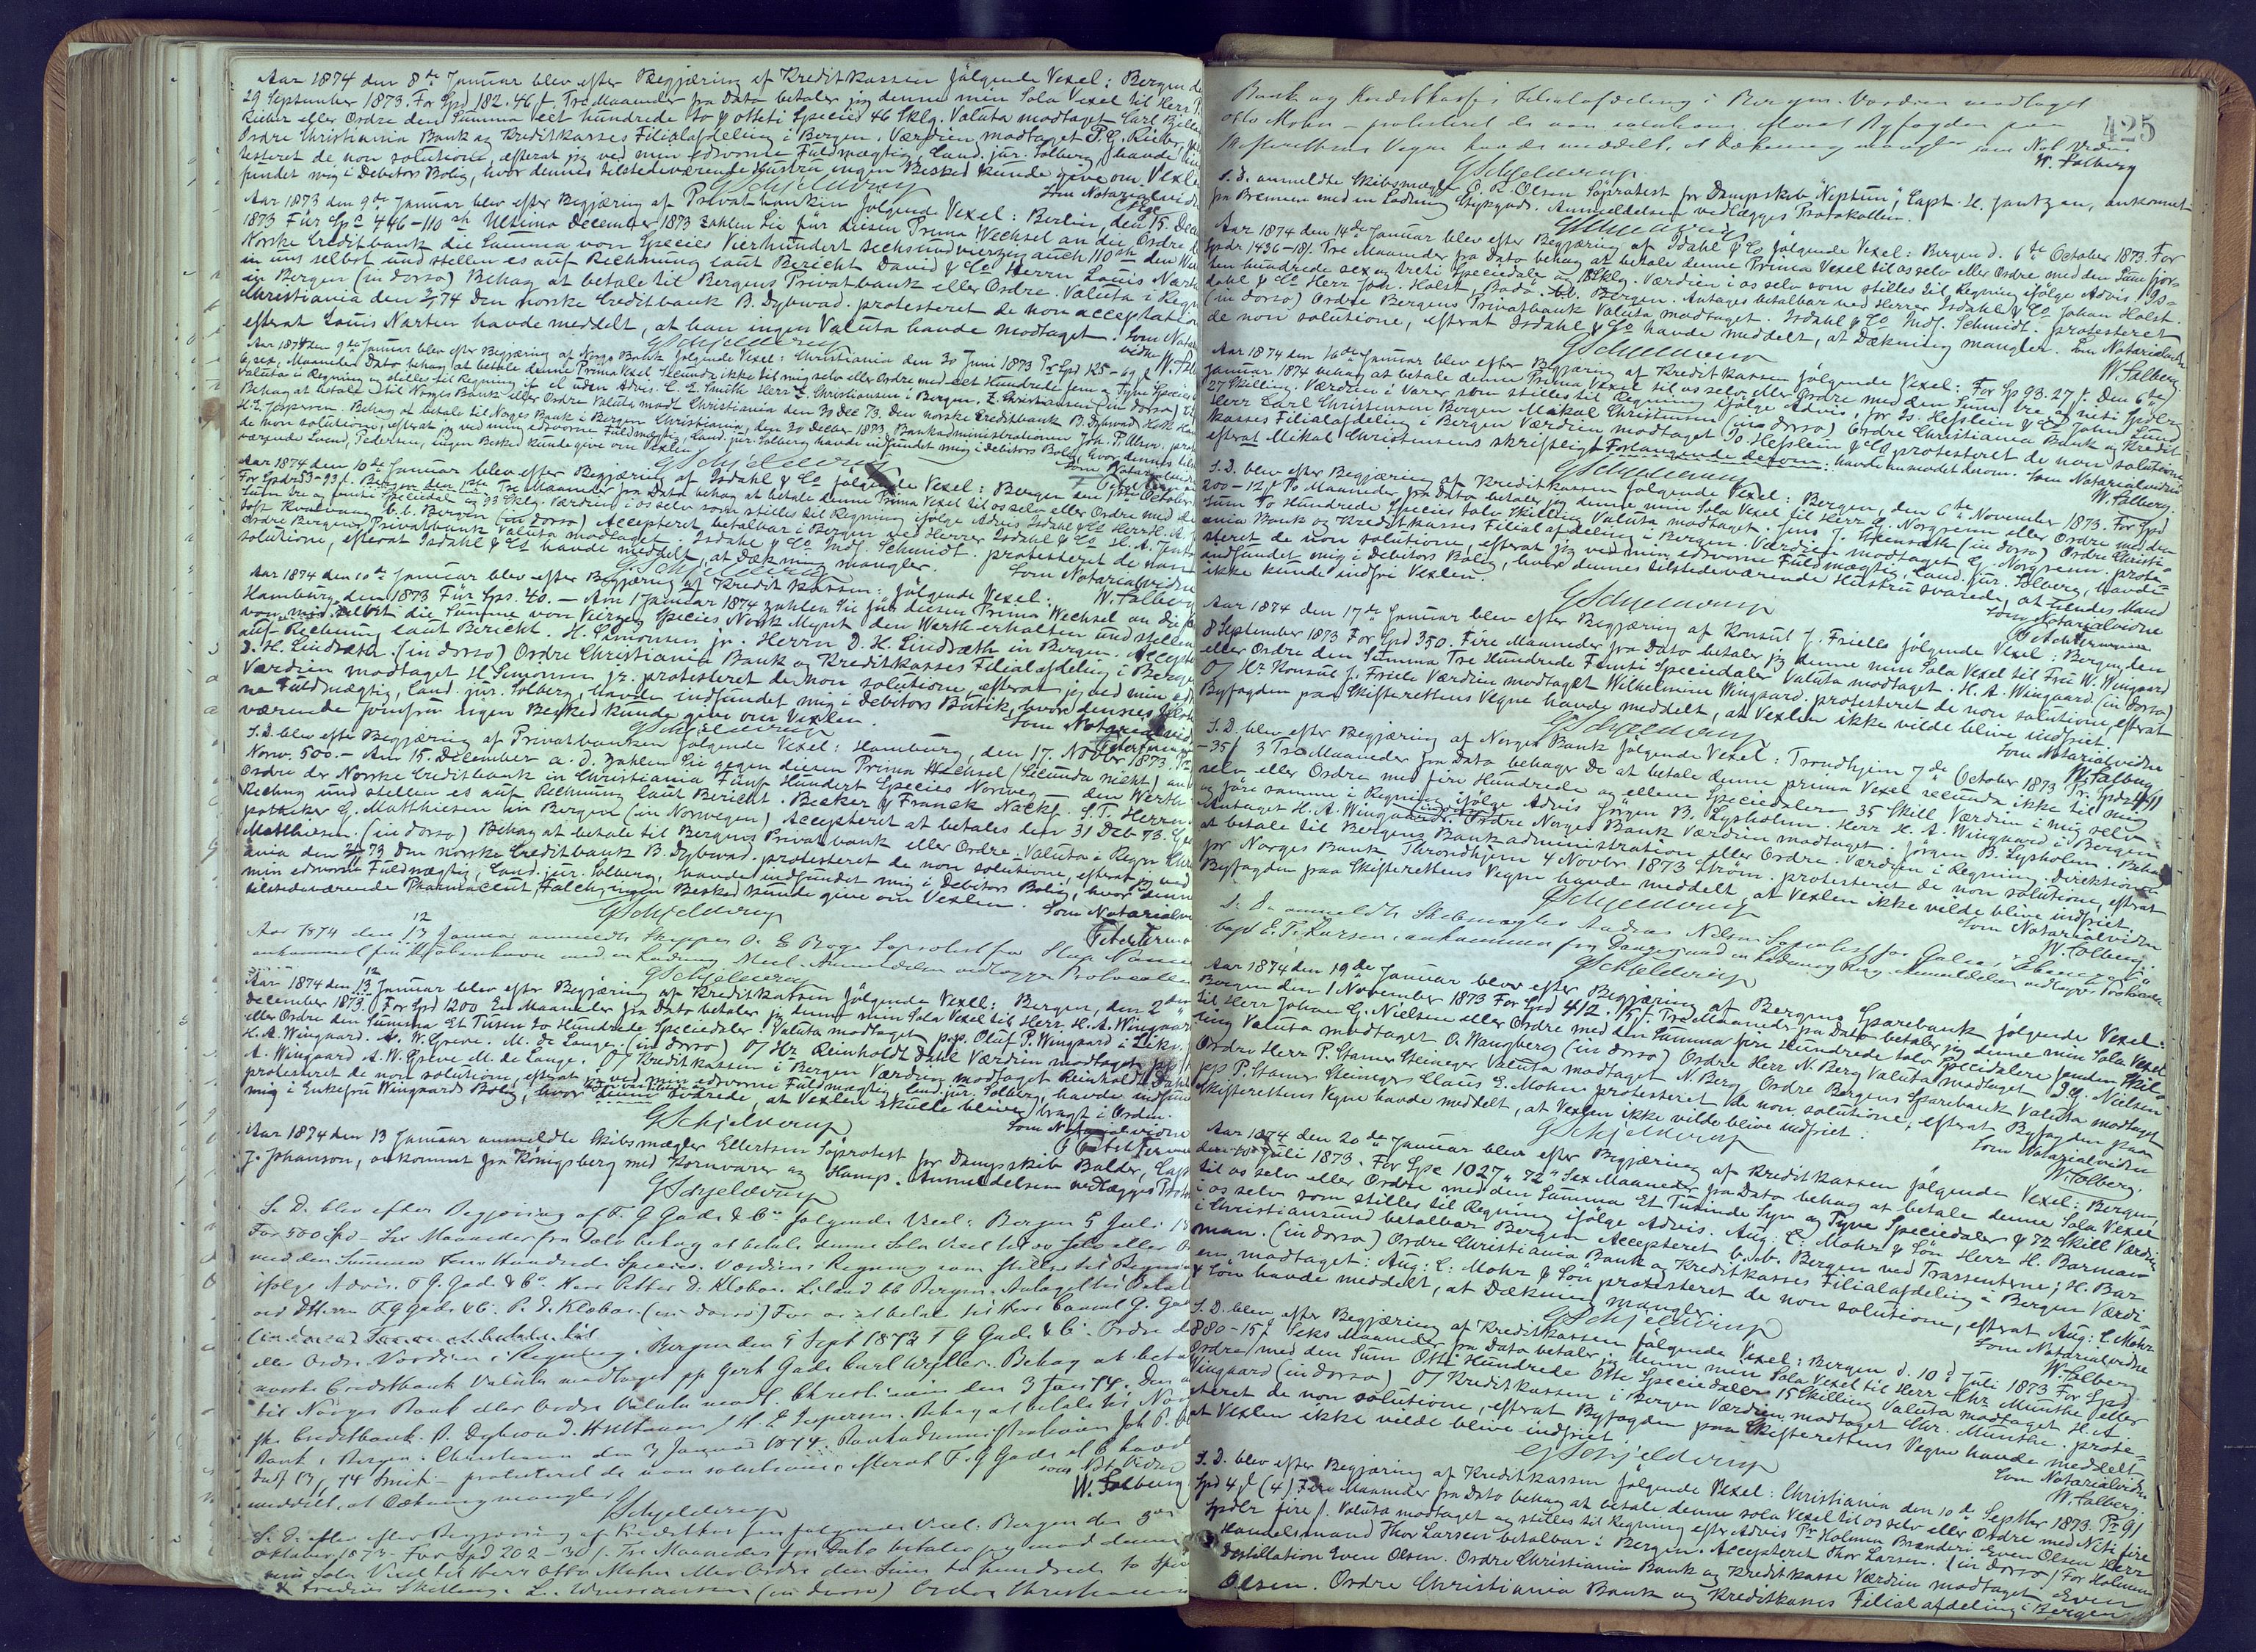 Aar 1874 den 8de Januar blev efter Begjæring af Kreditkassen følgende Vexel: Bergen de
29 September 1873. For Spd 182. 46 ß. Tre Maaneder fra Dato betaler jeg denne min Sola Vexel til Herr P.
Rieber eller Ordre den Summa eet hundrede to & otteti Species 46 Sklg. Valuta modtaget Carl
Ordre Christiania Bank og Kreditkasses Filialafdeling i Bergen. Værdien modtaget P. G. Rieber,
testeret de non solutione, efterat jeg ved min edsvorne Fuldmægtig, Cand. jur. Solberg, havde
fundet mig i Debitors Bolig, hvor dennes tilstedeværende Hustru ingen Besked kunde give om Vexle
GSchjelderup
Som Notarialvidne
Aar 1873 den 9de Januar blev efter Begjæring af Privatbanken følgende Vexel: Berlin, den 15. Dec
1873 Für Sps 446-110 sh Ultimo December 1873 zahlen Sie für diesen Prima Wechsel an die Ordre d
Norske Creditbank die Summa von Species Vierhundert sechsundvierzig auch 110 sh den Wer
in uns selbst und stellen es auf Rechnung laut Bericht David & Co Herrn Louis Narten
in Bergen (in dorso) Behag at betale til Bergens Privatbank eller Ordre. Valuta i Regn
Christiania den 2/1 74 Den norske Creditbank B. Dybwad. protesteret de non acceptatione
efterat Louis Narten havde meddelt, at han ingen Valuta havde modtaget. Som Notar
GSchjelderup
vidne W. Solb
Aar 1874 den 9de Januar blev efter Begjæring af Norges Bank følgende Vexel: Christiania den 30 Juni 1873 Pr Spd 125-69 ß
6, sex, Maaneder Dato behag at betale denne Prima Vexel Secunda ikke til mig selv eller Ordre med eet Hundrede fem og Tyve Species
Valuta i Regning og stilles til Regning if el uden Advis. C. E. Smith. Herr Z. Christiansen i Bergen. Z. Christiansen (in dorso)
Behag at betale til Norges Bank eller Ordre Valuta modt Christiania den 30 Dec 73. Den norske Creditbank B. Dybwad
H. L. Jespersen. Behag at betale til Norges Bank i Bergen Christiania, den 30 Decbr 1873. Bankadministrationen Joh. P. Olsen. prot
de non solutione, efterat jeg ved min edsvorne Fuldmægtig, Cand. jur. Solberg havde indfundet mig i Debitors Bolig, hvor dennes tilste
værende Svend, Pedersen, ingen Besked kunde give om Vexlen.
GSchjelderup
Som Notarialvidne
Aar 1874 den 10de Januar blev efter Begjæring af Isdahl & Co følgende Vexel: Bergen den 1ste October
For Spdr 53-93 ß. Bergen den 1ste Tre Maaneder fra Dato behag at betale denne Prima Vexel til os selv eller Ordre med de
Sum tre og femti Speciedal og 93 Sklg. Værdien i os selv som stilles til Regning ifølge Advis Isdahl & Co Herr H. A.
Tofte Kvalvaag b. b. Bergen (in dorso) Accepteret betalbar i Bergen ved Herrer Isdahl & Co H. A. Jens
Ordre Bergens Privatbank Valuta modtaget. Isdahl & Co Indf. Schmidt. protesteret de non
solutione, efterat Isdahl & Co havde meddelt, at Dækning mangler.
GSchjelderup
Som Notarialvidne
W. Solberg
Aar 1874 den 10de Januar blev efter Begjæring af Kreditkassen følgende Vexel:
Hamburg, den 1873 Für Sps. 40.- Am 1 Januar 1874 zahlen Sie für diesen Prima Wechsel an die
von mir selbst die Summe von Vierzig Species Norsk Mynt den Werth erhalten und stellen
auf Rechnung laut Bericht. H. Simonsen jr. Herrn D. H. Lindsæth in Bergen. Accept
D. H. Lindsæth. (in dorso) Ordre Christiania Bank og Kreditkasses Filialafdeling i Berge
Værdien modtaget H. Simonsen jr. protesteret de non solutione, efterat jeg ved min ed
ne Fuldmægtig, Cand. jur. Solberg, havde indfundet mig i Debitors Butik, hvor dennes tilste
værende Jomfru ingen Besked kunde give om Vexlen.
GSchjelderup
Som Notarialvid
S. D. blev efter Begjæring af Privatbanken følgende Vexel: Hamburg, den 17. Novbr 1873.
Norw. 500.- Am 15. December a. d. zahlen Sie gegen diesen Prima Wechsel (Secunda nicht) an
Ordre der Norske Creditbank in Christiania Fünf Hundert Species Norweg - den Werth
Rechng und stellen es auf Rechnung laut Bericht. Becker & Franck Nachf. S. T. Herrn
potheker G. Matthiesen in Bergen (in Norwegen) Accepteret at betales den 31 Dcb 73. G
Matthiesen. (in dorso) Behag at betale til Bergens Privatbank eller Ordre - Valuta i Regn Chri
ania den 21/11 73 Den norske Creditbank B. Dybwad. protesteret de non solutione, efterat jeg ved
min edsvorne Fuldmægtig, Cand. jur. Solberg, havde indfundet mig i Debitors Bolig, hvor denne
tilstedeværende Pharmaceut Falch, ingen Besked kunde give om Vexlen.
GSchjelderup
Som Notarialvi
Aar 1874 den 12 Januar anmeldte Skipper O. E. Boge Søprotest for Slup
ankommet fra Kjøbenhavn med en Ladning Meel. Anmeldelsen vedlægges Protocollen
GSchjelderup
Aar 1874 den 12 Januar blev efter Begjæring af Kreditkassen følgende Vexel: Bergen, den 2den
December 1873. For Spd 1200 En Maaneder fra Dato betaler jeg denne min Sola Vexel til Herr. H. A. Wingaar
eller Ordre den Summa Et Tusen to Hundrede Speciedaler. Valuta modtaget ppp. Oluf P. Wingaard i Likv.
H. A. Wingaard. A. W. Greve. M. de Lange. (in dorso) O/ Hr Reinholdt Dahl Værdien modtaget
A. Wingaard A. W. Greve M. de Lange. O/ Kreditkassen i Bergen Værdien modtaget Reinholdt Dahl
protesteret de non solutione, efterat jeg ved min edsvorne Fuldmægtig Cand. jur. Solberg, havde indfun
mig i Enkefru Wingaards Bolig, hvor denne svarede, at Vexlen skulde blive bragt i Orden.
GSchjelderup
Som Notarialvidne
Aar 1874 den 13 Januar anmeldte Skibsmægler Ellertsen Søprotest for Dampskib Balder, Capt
J. Johanson, ankommet fra Königsberg med Kornvarer og Hamp. Anmeldelsen vedlægges Proto
GSchjelderup
S. D. blev efter Begjæring af F. G. Gade & Co følgende Vexel: Bergen 5 Juli 18
For 500 Spd - Sex Maaneder fra Dato behag at betale denne Sola Vexel til os selv eller
med den Summa Fem Hundrede Species. Værdien i Regning som stilles til Regning
ifølge Advis. F G. Gade & Co. Herr Petter D. Klæboe. Liland bb Bergen. Antaget til betal
ved DHerrer F G Gade & Co. P. D. Klæboe. (in dorso) For os at betale til Herr
eller Ordre. Værdien i Regning. Bergen den 5 Sept 1873 F G Gade & Co. Ordre d
norske Creditbank Valuta modtaget pp Gerh Gade Carl Willer. Behag at betal
til Norges Bank eller Ordre Valuta modt. Christiania den 3 Jan 74. Den
ske Creditbank. B. Dybwad. H. L. Jespersen. Behag at betale til Nor
Bank i Bergen. Christiania den 3 Januar 1874. Bankadministrationen Joh P. Ol
Indf 13/1 74 Smit - protesteret de non solutione, efterat F. G Gade & Co havde
meddelt, at Dækning mangler
som Not Vidne
W. Solberg
GSchjelderup
S. D. blev efter Begjæring af Kreditkassen følgende Vexel: Bergen den
Oktober 1873. For Spd 202-30 ß. Tre Maaneder fra Dato betaler jeg mod denne
min Sola Vexel til Herr Otto Mohn eller Ordre den Sum to hundrede to Spe
& tredive Skilling. (in dorso) Ordre Christiania
425
Bank og Kreditkasses Filialafdeling i Bergen. Værdien modtaget
Otto Mohn - protesteret de non solutione, efterat Byfogden paa
Skifterettens Vegne havde meddelt, at Dækning mangler
som Not Vidne
W. Solberg
GSchjelderup
S. D. anmeldte Skibsmægler C. R. Olsen Søprotest for Dampskib "Neptun", Capt. H. Jantzen, ankommet
fra Bremen med en Ladning Stykgods. Anmeldelsen vedlægges Protokollen.
GSchjelderup
Aar 1874 den 14de Januar blev efter Begjæring af Isdahl & Co følgende Vexel: Bergen d. 6te October 1873. For
Spdr 1436-18 ß. Tre Maaneder fra Dato behag at betale denne Prima Vexel til os selv eller Ordre med den Sum fjor-
ten hundrede sex og treti Speciedale og 18 Sklg. Værdien i os selv som stilles til Regning ifølge Advis Is-
dahl & Co Herr Joh. Holst, Bodø. b.b. Bergen. Antages betalbar ved Herrer Isdahl & Co Johan Holst.
(in dorso) Ordre Bergens Privatbank Valuta modtaget. Isdahl & Co Indf. Schmidt. protesteret
de non solutione, efterat Isdahl & Co havde meddelt, at Dækning mangler.
Som Notarialvidne
GSchjelderup
W. Solberg
Aar 1874 den 16de Januar blev efter Begjæring af Kreditkassen følgende Vexel: For Sp 93. 27 ß. Den 6te
Januar 1874 behag at betale denne Prima Vexel til os selv eller Ordre med den Sum tre og niti Spdlr
27 Skilling. Værdien i Varer som stilles til Regning ifølge Advis, for Is. Hesslein & Co John Lund
Herr Carl Christensen Bergen Mikal Christensen (in dorso) Ordre Christiania Bank og Kredit-
kasses Filialafdeling i Bergen Værdien modtaget Is Hesslein & Co protesteret de non solutione
efterat Mikal Christensens skriftligt Forlangende derom: havde anmodet derom. Som Notarialvidne
GSchjelderup
W. Solberg.
S. D. blev efter Begjæring af Kreditkassen følgende Vexel: Bergen, den 6te November 1873. For Spd
200-12 ß To Maaneder fra Dato betaler jeg denne min Sola Vexel til Herr G. Norgrenn eller Ordre med den
Sum To Hundrede Species tolv Skilling Valuta modtaget. Jens J. (in dorso) Ordre Christi-
ania Bank og Kreditkasses Filialafdeling i Bergen. Værdien modtaget G. Norgrenn. prote-
steret de non solutione, efterat jeg ved min edsvorne Fuldmægtig, Cand. jur. Solberg, havde
indfundet mig i Debitors Bolig, hvor dennes tilstedeværende Hustru svarede, at hendes Mand
ikke kunde indfri Vexlen.
GSchjelderup
Som Notarialvidne
Aar 1874 den 17de Januar blev efter Begjæring af Konsul J. Frieles følgende Vexel: Bergen, den
8 September 1873 For Spd 350. Fire Maaneder fra Dato betaler jeg denne min Sola Vexel til Fru W. Wingaard
eller Ordre den Summa Tre Hundrede Femti Speciedaler Valuta modtaget. H. A. Wingaard (in dorso)
O/ Hr Konsul J. Friele Værdien modtaget Wilhelmine Wingaard. protesteret de non solutione, efterat
Byfogden paa Skifterettens Vegne havde meddelt, at Vexlen ikke vilde blive indfriet.
GSchjelderup
Som Notarialvidne
W. Solberg
S. D. blev efter Begjæring af Norges Bank følgende Vexel: Trondhjem 7de October 1873 Pr. Spdr 411
-35 ß 3 Tre Maaneder fra Dato behager De at betale denne prima Vexel secunda ikke til mig
selv eller Ordre med fire Hundrede og elleve Speciedaler 35 Skill Værdien i mig selv
og føre samme i Regning ifølge Advis Jörgen B. Lysholm. Herr H. A. Wingaard i Bergen
Antaget H. A. Wingaard. in dorso Ordre Norges Bank Værdien modtaget. Jörgen B. Lysholm. Behag
at betale til Bergens Bankadministration eller Ordre. Værdien i Regning. Direktionen
for Norges Bank Throndhjem 4 Novbr 1873 Strøm. protesteret de non solutione, efterat
Byfogden paa Skifterettens Vegne havde meddelt, at Vexlen ikke vilde blive indfriet.
GSchjelderup
Som Notarialvidne
W. Solberg.
S. D. anmeldte Skibsmægler Andreas Nilsen Søprotest for Galias "Ebenezer"
Capt E. T. Larsen, ankommen fra Danzig med en Ladning Rug. Anmeldelsen vedlægges Protokollen
GSchjelderup
Aar 1874 den 19de Januar blev efter Begjæring af Bergens Sparebank følgende Vexel:
Bergen den 1 November 1873 For Spd 412. 15 ß. Tre Maaneder fra Dato betaler jeg denne min Sola Vexel
til Herr Johan G. Nielsen eller Ordre med den Summa fire Hundrede tolv Speciedalere femten Skil-
ling Valuta modtaget O. Wangberg (in dorso) Ordre Herr N. Berg Valuta modtaget J. G. Nielsen.
Ordre Herr P. Stamer Steineger Valuta modtaget N. Berg Ordre Bergens Sparebank Valuta modtaget
ppp P. Stamer Steinegers Claus E. Mohn protesteret de non solutione, efterat Byfogden paa
Skifterettens Vegne havde meddelt, at Vexlen ikke vilde blive indfriet.
GSchjelderup
Som Notarialvidne
W. Solberg.
Aar 1874 den 20de Januar blev efter Begjæring af Kreditkassen følgende Vexel: Bergen,
den 10 Juli 1873. For Spe 1027 " 72 " Sex Maaneder fra Dato behag at betale denne Sola Vexel
til os selv eller Ordre med den Summa Et Tusinde Syv og Tyve Speciedaler & 72 Skill Værdien
i os selv som stilles til Regning ifølge Advis. Aug: C: Mohr & Søn Herr H. Barman
i Christiansund betalbar Bergen Accepteret b. b. Bergen ved Trassenterne; H. Bar
man. (in dorso) Ordre Christiania Bank og Kreditkasses Filialafdeling i Bergen Værdi-
en modtaget: Aug: C: Mohr & Søn protesteret de non solutione, efterat Aug: C. Mohr
& Søn havde meddelt, at Dækning mangler.
GSchjelderup
Som Notarialvidne
W. Solberg
S. D. blev efter Begjæring af Kreditkassen følgende Vexel: Bergen d. 10 d Juli 1873 For Spd
880-15 ß Seks Maaneder fra Dato betaler jeg denne min Sola Vexel til Herr Chr Münthe eller
Ordre med den Sum Otte Hundrede Otte Speciedaler 15 Skilling Valuta modtaget H. A.
Wingaard (in dorso) O/ Kreditkassen i Bergen Værdien modtaget Chr. Münthe. prote-
steret de non solutione, efterat Byfogden paa Skifterettens Vegne havde meddelt
at Vexlen ikke vilde blive indfriet
GSchjelderup
Som Notarialvidne
W. Solberg.
S. D. blev efter Begjæring af Kreditkassen følgende Vexel: Christiania den 10de Septbr 1873. Pr 91
Spd 4 ß (4) Fire Maaneder fra Dato behag at betale denne sola Vexel til os selv eller Ordre med Niti fire
Spdlr fire ß. Valuta modtaget og stilles til Regning efter Advis Pr Holmen Brænderi Even Olsen Herr
Handelsmand Thor Larsen betalbar i Bergen. Accepteret Thor Larsen. (in dorso) For Holmen
Destillation Even Olsen. Ordre Christiania Bank og Kreditkasse Værdien modtaget Even
Olsen. Ordre Christiania Bank og Kreditkasses Filialafdeling i Bergen